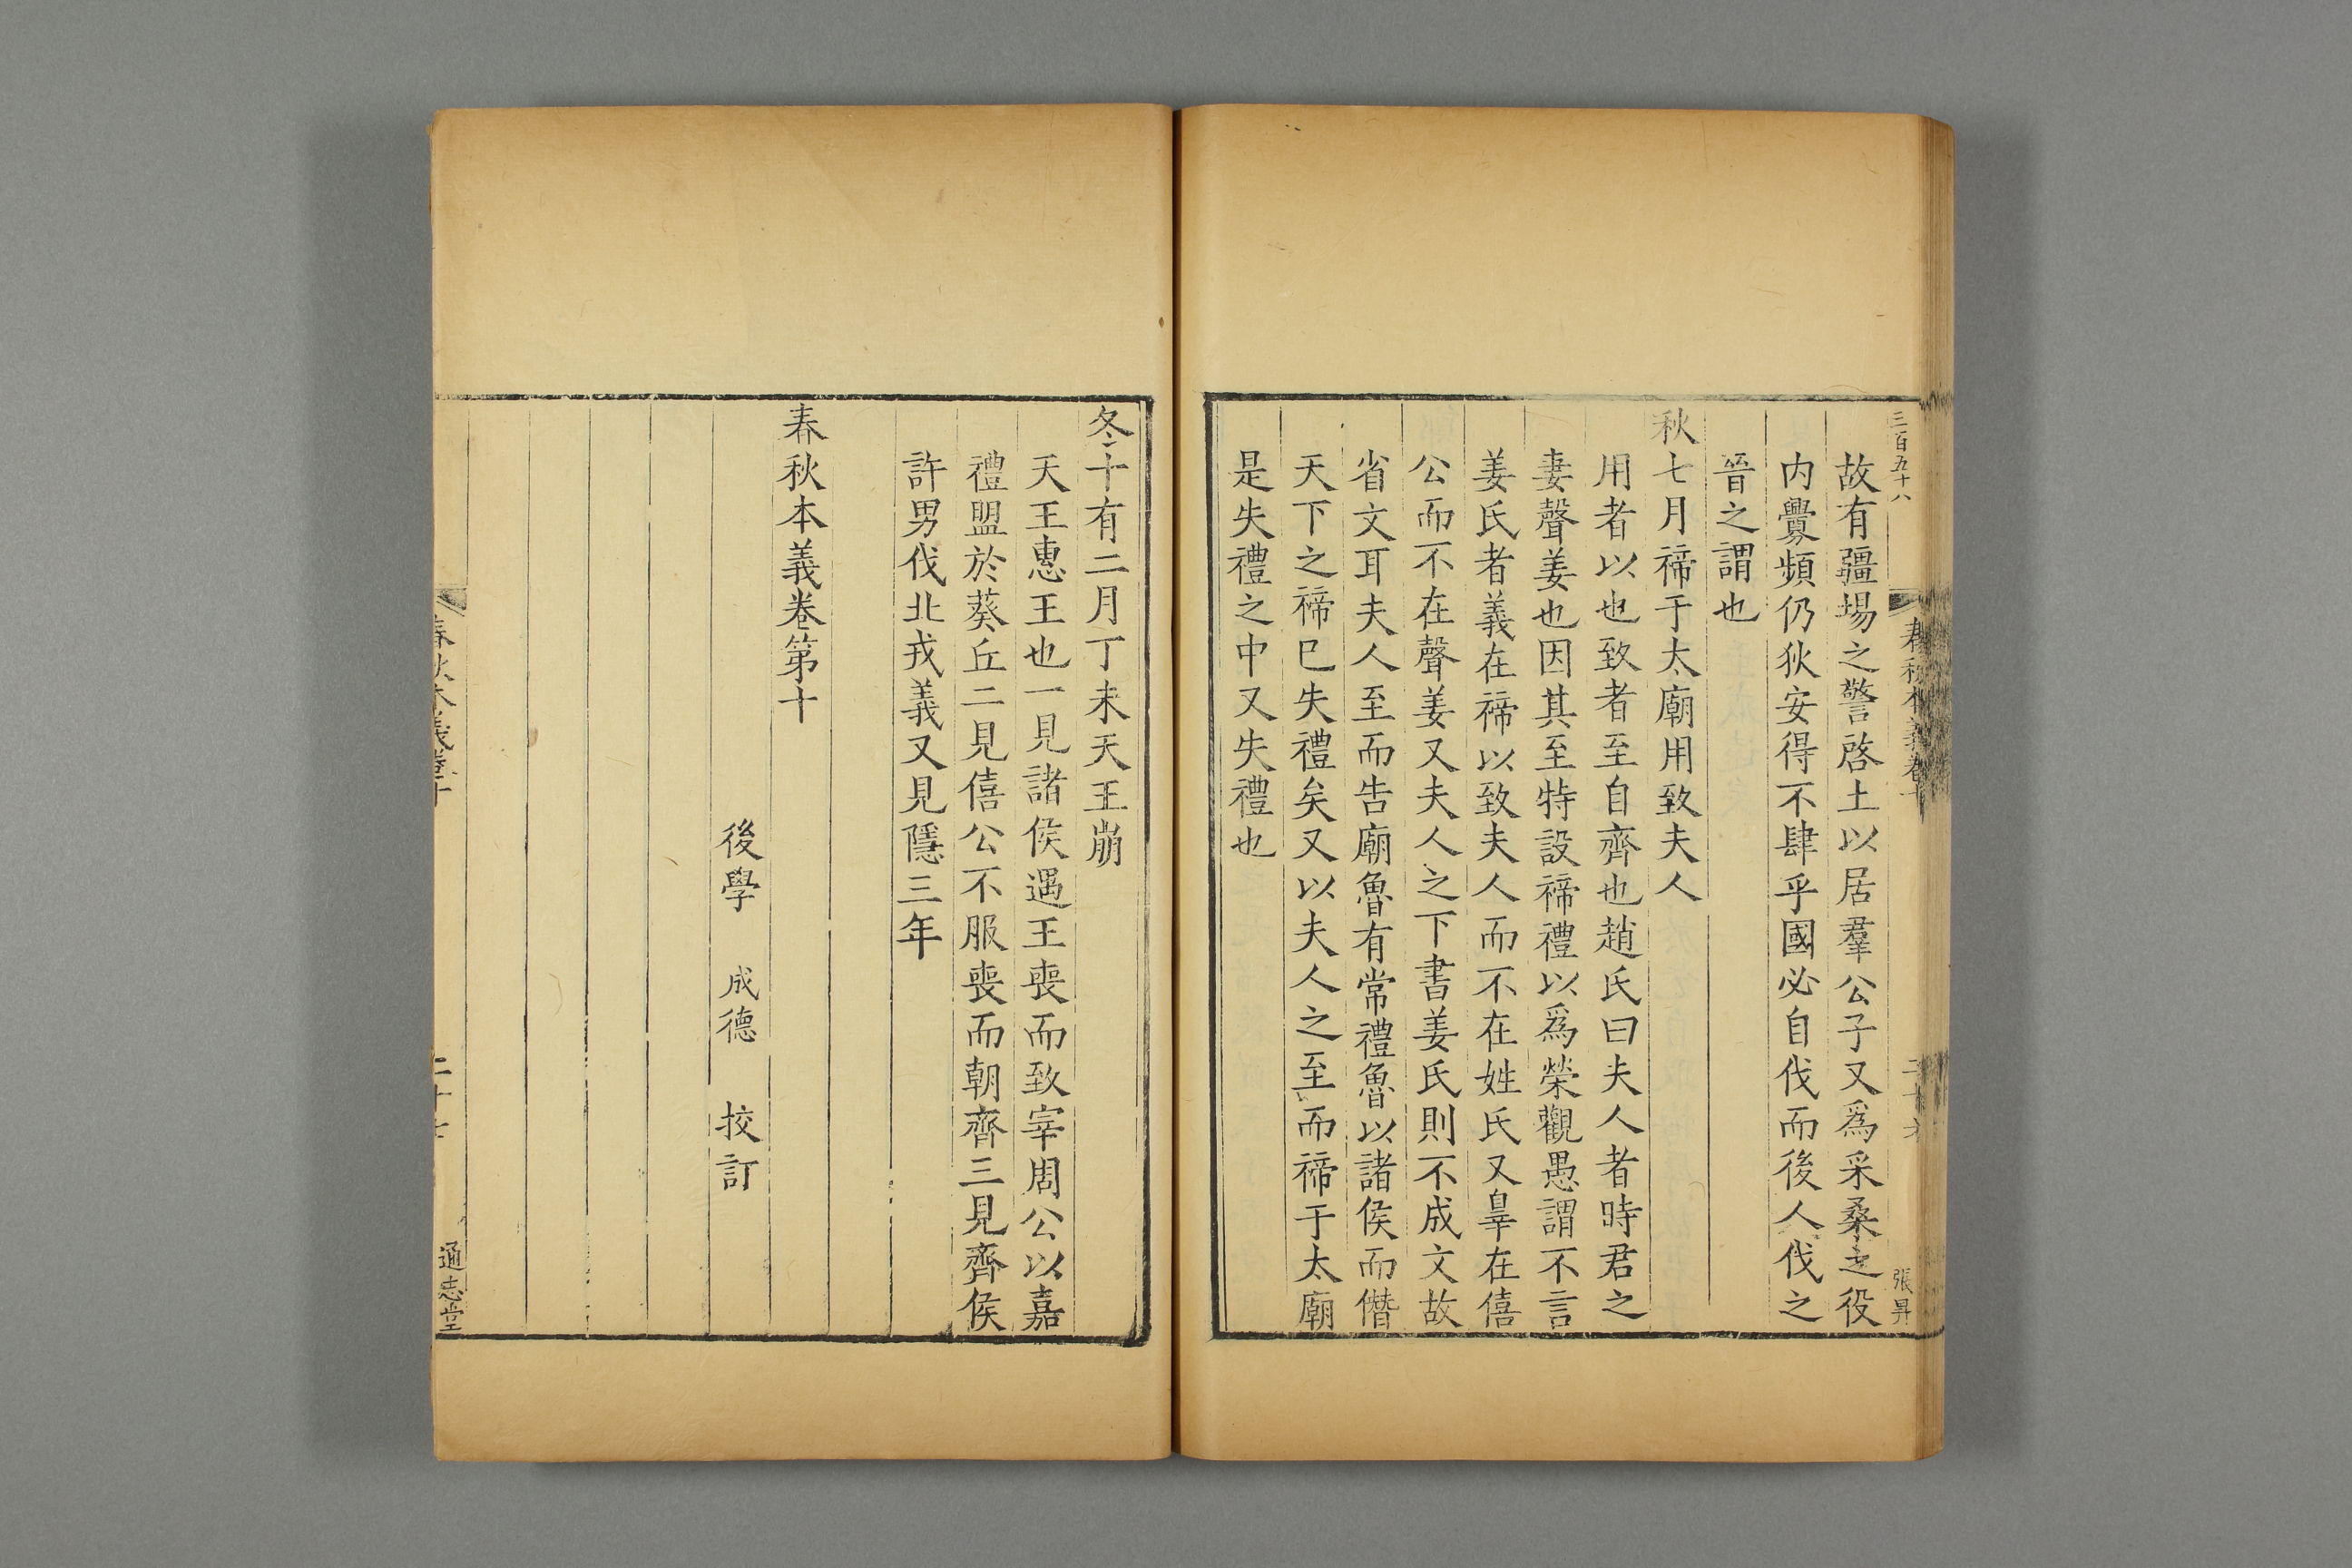 三百五十八
春秋本義卷十
二十六
張昇
故有疆埸之警啓土以居羣公子又爲采桑之役
内釁頻仍狄安得不肆乎國必自伐而後人伐之
晉之謂也
秋七月禘于太廟用致夫人
用者以也致者至自齊也趙氏曰夫人者時君之
妻聲姜也因其至特設禘禮以爲榮觀愚謂不言
姜氏者義在禘以致夫人而不在姓氏又辠在僖
公而不在聲姜又夫人之下書姜氏則不成文故
省文耳夫人至而告廟魯有常禮魯以諸侯而僭
天下之禘巳失禮矣又以夫人之至而禘于太廟
是失禮之中又失禮也
冬十有二月丁未天王崩
天王惠王也一見諸侯遇王喪而致宰周公以嘉
禮盟於葵丘二見僖公不服喪而朝齊三見齊侯
許男伐北戎義又見隱三年
春秋本義卷第十
後學 成德 校訂
春秋本義卷十
二十七
通志堂